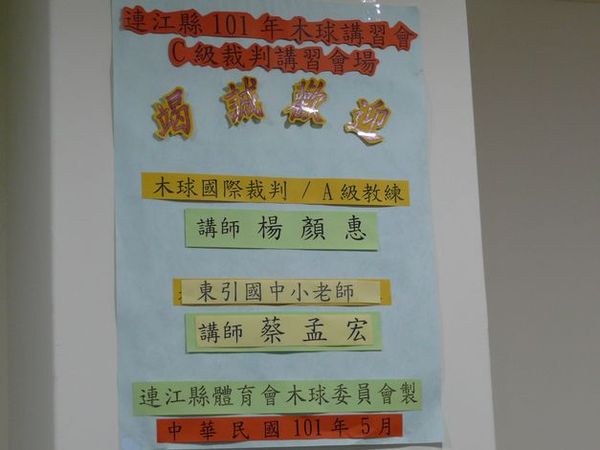 連江縣101年木球講習會
C級裁判講習會場
竭誠歡迎
木球國際裁判 / A級教練
講師 楊顏惠
東引國中小老師
講師 蔡孟宏
連江縣體育會木球委員會製
中華民國101年5月